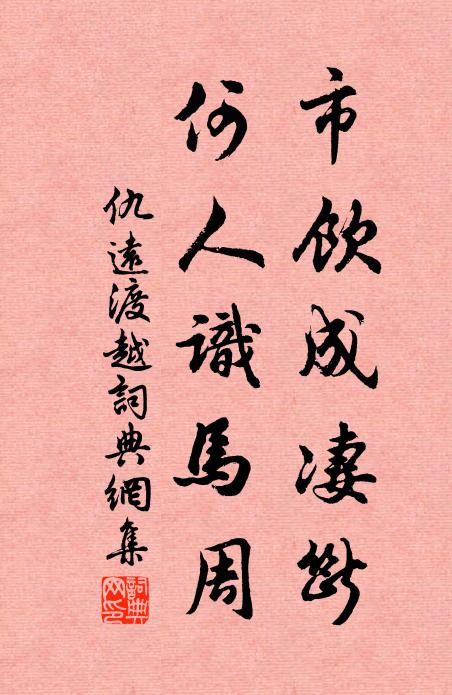 市飲成淒斷
何人識馬周
仇遠渡越詞典網集
詞典網印